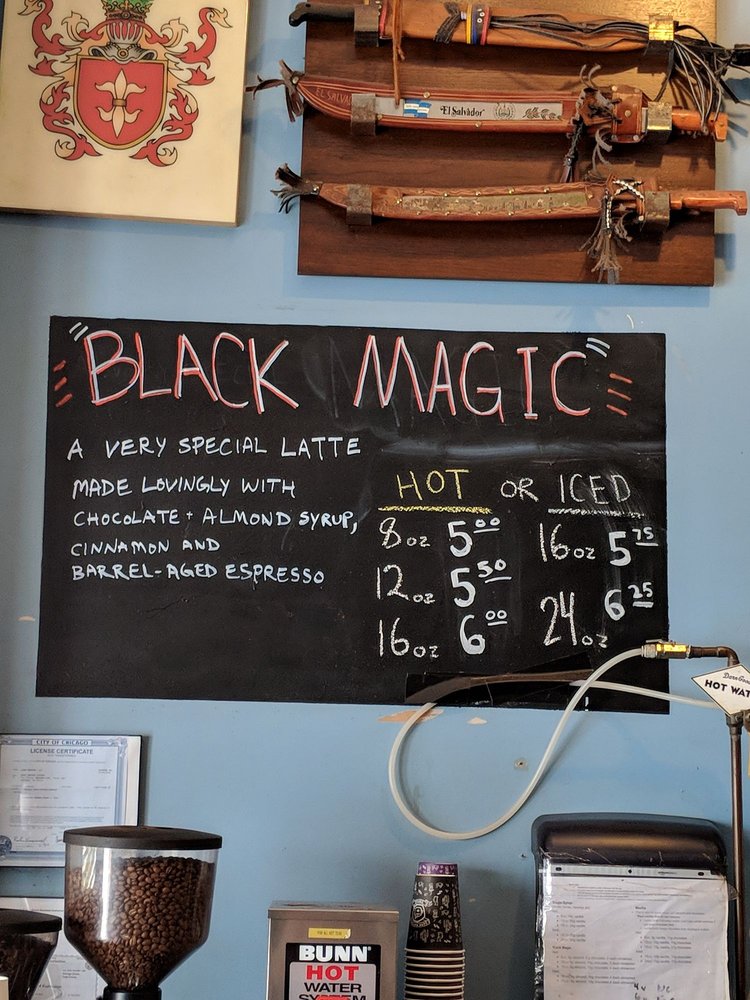 EL SALVA
El Salvador
"BLACK MAGIC"
A VERY SPECIAL LATTE
MADE LOVINGLY WITH
CHOCOLATE + ALMOND SYRUP,
CINNAMON AND
BARREL-AGED ESPRESSO
HOT OR ICED
8oz 5 00 16oz 5 75
12oz 5 50 24oz 6 25
16oz 6 00
HOT WAT
CITY OF CHICAGO
LICENSE CERTIFICATE
BUNN
HOT
WATER
SYSTEM